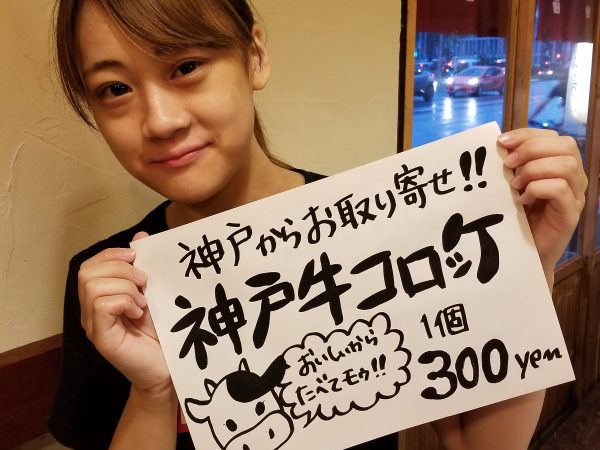 神戸からお取り寄せ!!
神戸牛コロッケ
おいしいから
たべてモゥ!!
1個
300yen